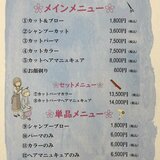 メインメニュー
①カット&ブロー 1,800円(税込)
②シャンプーカット 3,600円(税込)
③カットパーマ 7,500円(税込)
④カットカラー 7,500円(税込)
⑤カットヘアマニキュア 8,000円(税込)
⑥お顔剃り 600円(税込)
セットメニュー
カットパーマカラー 13,500円(税込)
カットパーマヘアマニキュア 14,000円(税込)
単品メニュー
⑨シャンプーブロー 1,800円(税込)
⑩パーマのみ 6,000円(税込)
カラーのみ 6,000円(税込)
ヘアマニキュアのみ 6,500円(税込)